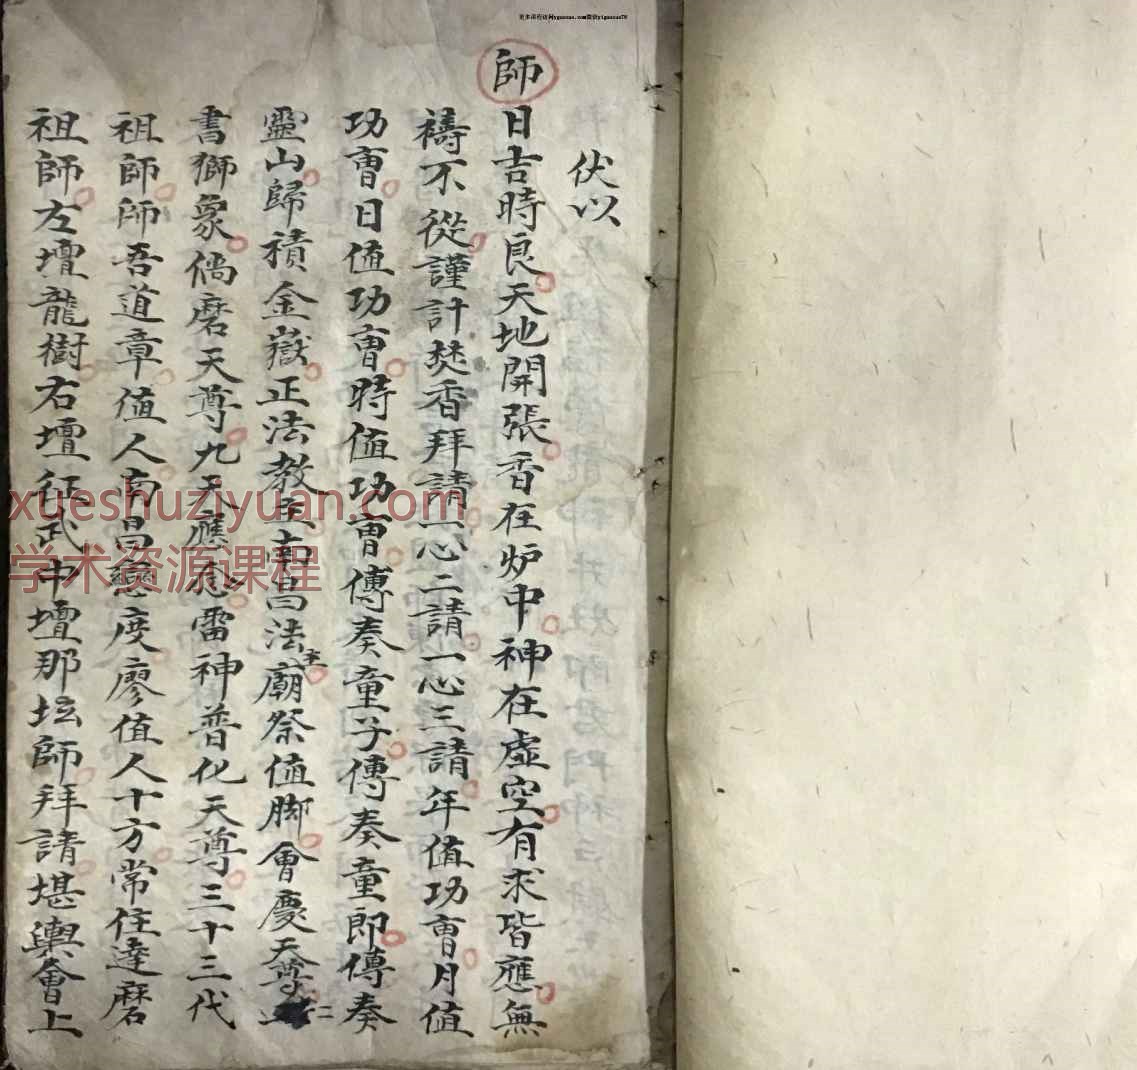 伏以
師日吉時良天地開張香在炉中神在虛空有求皆應無
禱不從謹計焚香拜請一心二請一心三請年值功曹月值
功曹日值功曹時值功曹傳奏童子傳奏童郎傳奏
靈山歸積金嶽正法教主南昌法主廟祭值脚會慶天尊二
書獅象偹磨天尊九天應愈雷神普化天尊三十三代
祖師師吾道章值人南昌戀度廖值人十方常住達磨
祖師左壇龍樹右壇征武中壇那坛師拜請堪輿會上
xueshuziyuan.com
学术资源课程